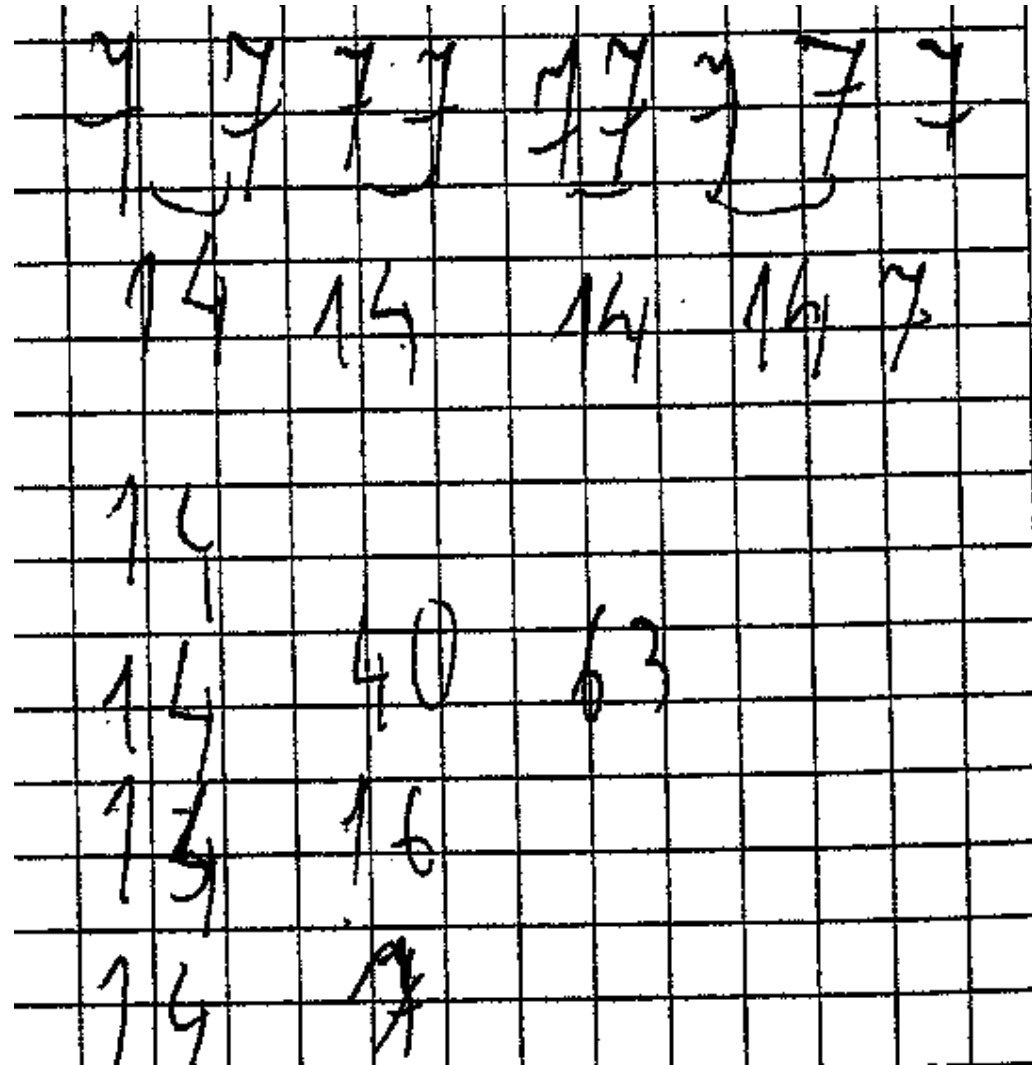 7 7 7 7 7 7 7 7 7
14 14 14 14 7
14
14 40 63
14 16
14 7